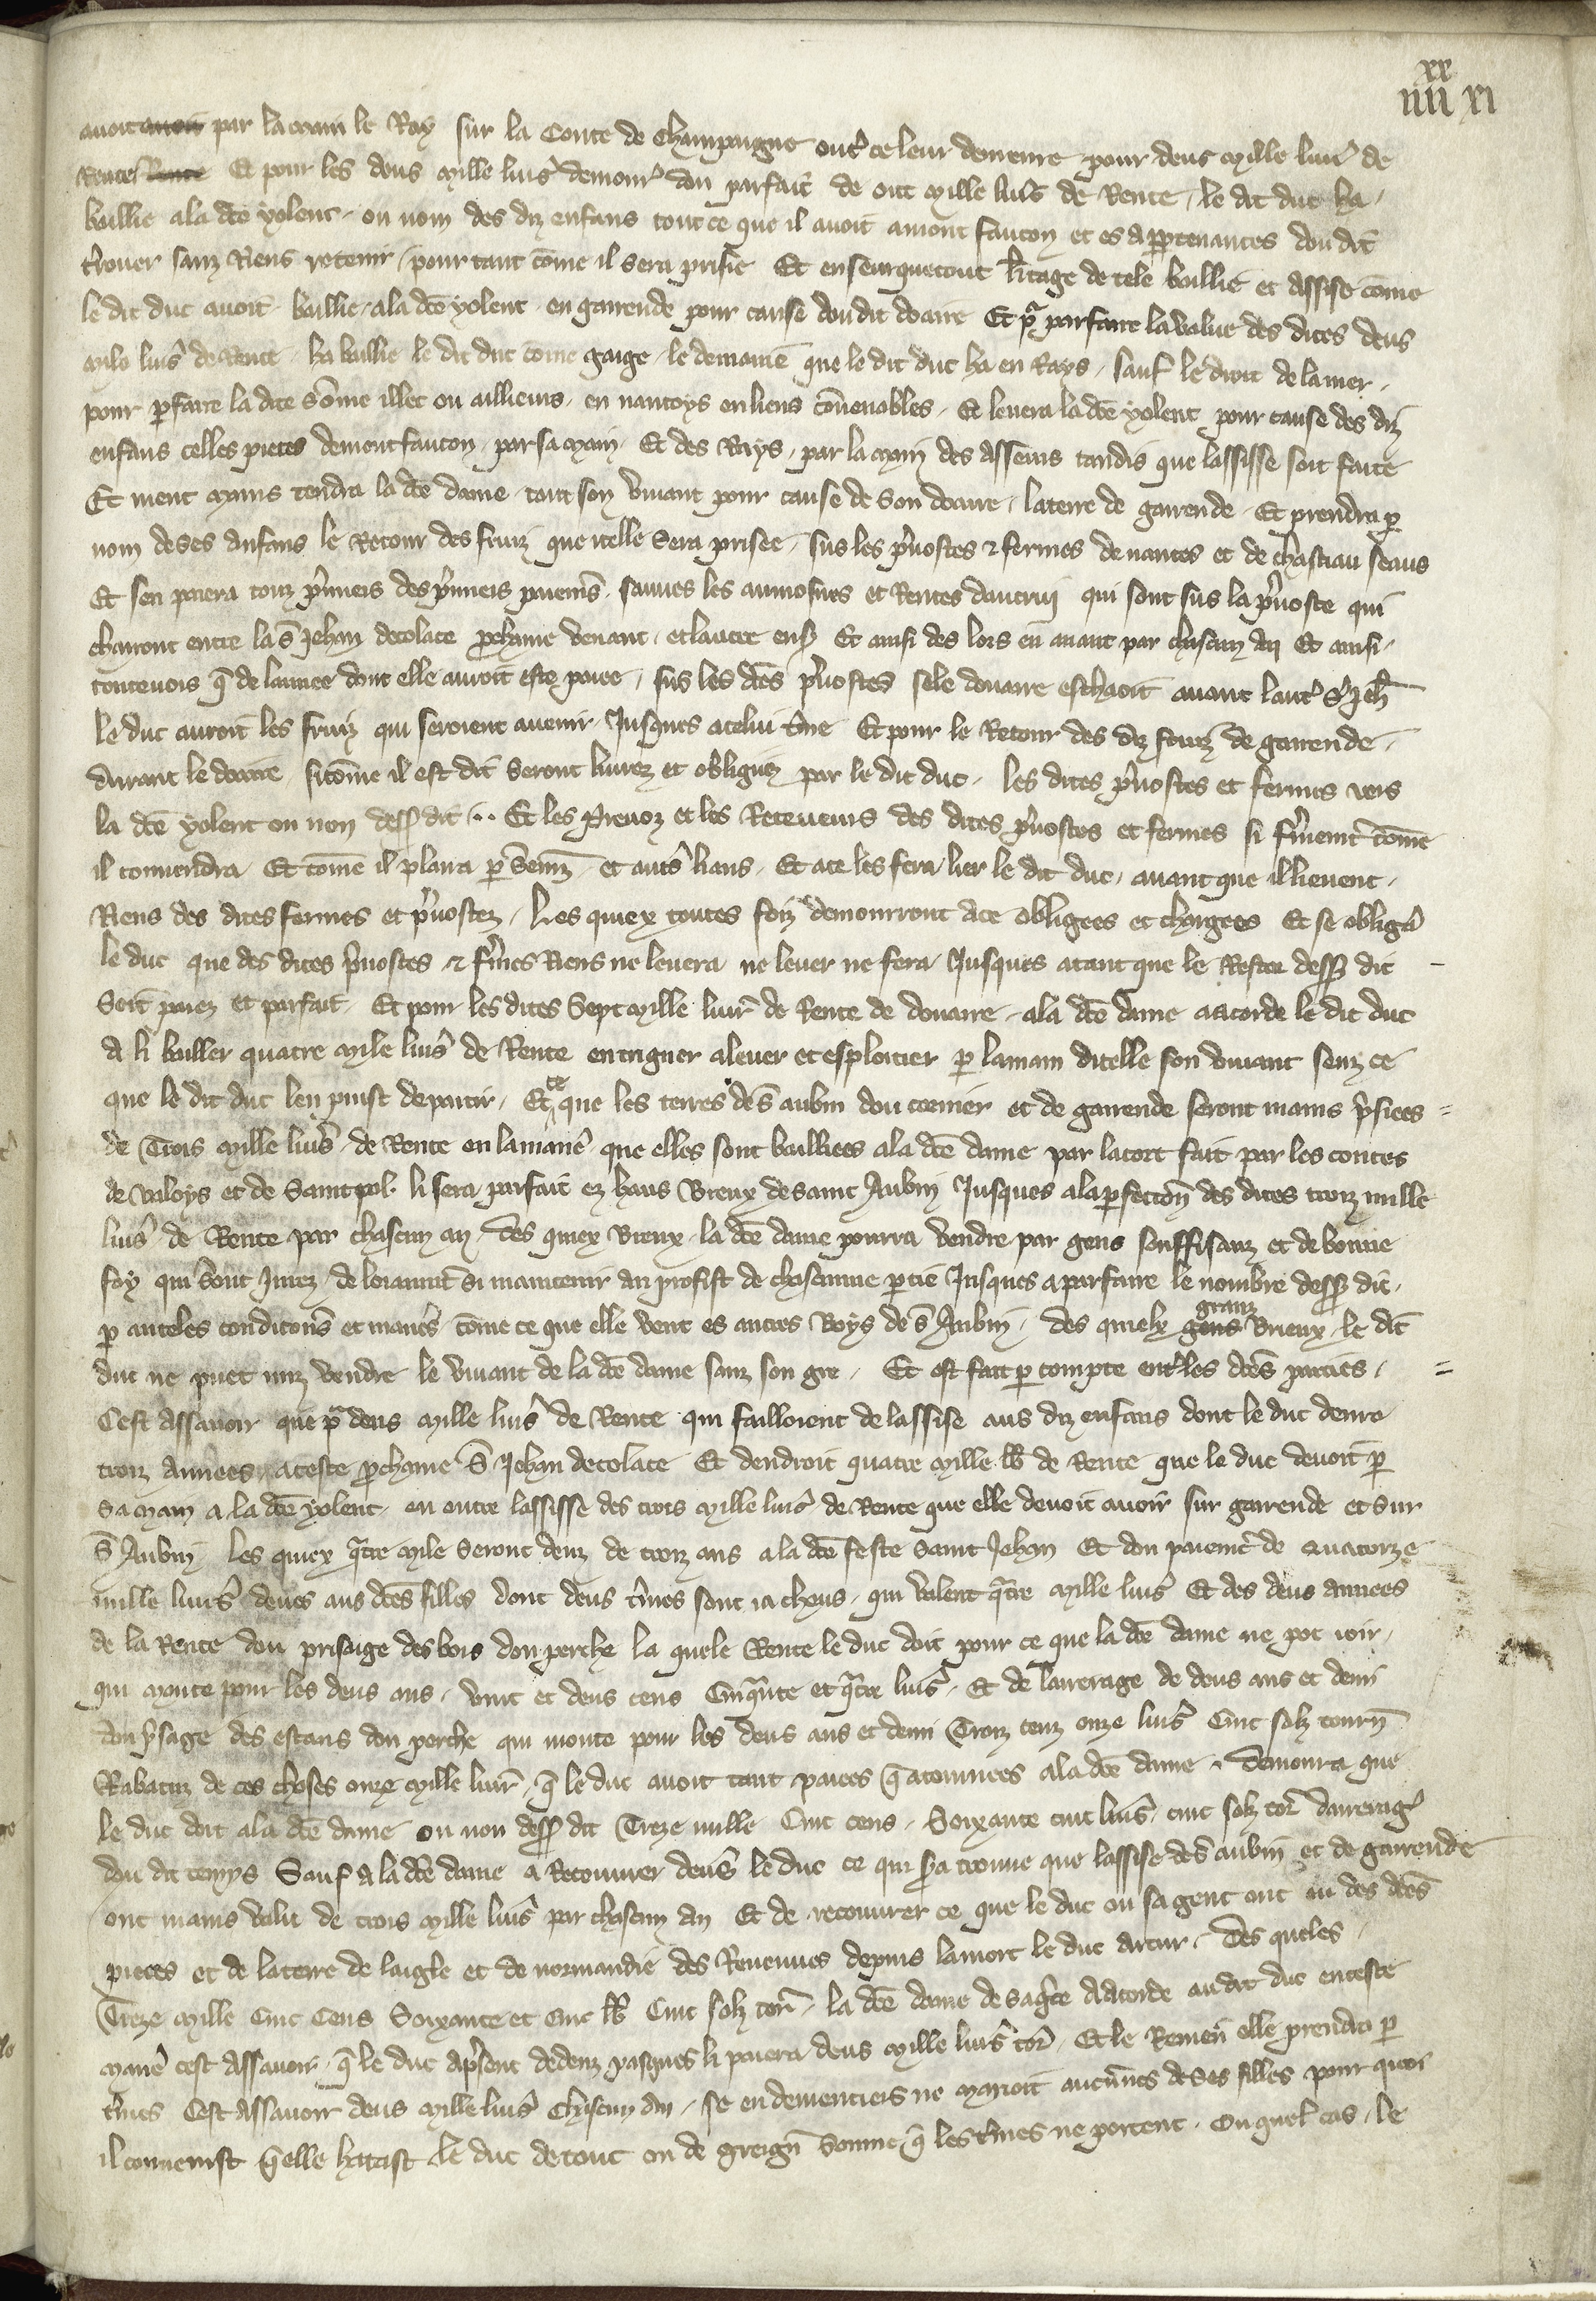 xx
iiii xi
avoit avoit par la main le Roy sur la Conte de Champaigne out' ce leur demeure pour deus mille livr' de
Rente Rente Et pour les deus mille livr' demour' dou parfait de oict mille livr' de Rente, le dit duc ha
baillie a la dce yolent ou nom des diz enfans tout ce que il avoit amont faucon et es appartenances dou dit
trover sanz Riens retenir pour tant come il sera prisie Et enseurquetout l'itage de tele baillie et assise come
le dit duc avoit baillie a la dce yolent en garrende pour cause dou dit doaire Et pr parfaire la value des dites deus
mile livr' de rente ha baillie le dit duc come gaige le demaine que le dit duc ha en Rays sauf le droit de la mer
pour pfaire la dite some illec ou aillieurs en nantoys en lieus covenables Et levera la dce yolent pour cause des diz
enfans celles pieces de mont faucon par sa main Et des Rays par la main des asseurs tandis que lassisse soit faite
Et nient mains tendra la dce dame tout son vivant pour cause de son doaire la terre de garrende Et prendra p
nom de ses anfans le Retour des fruiz que icelle sera prisee sus les p'vostes & fermes de nantes et de chastiau seaus
Et sen paiera touz p'miers des p'miers paiem's sauves les aumosnes et Rentes dautrui qui sont sus la p'voste qui
charront entre la s Jehan decolace p'chaine venant et lautre ens' Et ainsi des lors en avant par chascun an Et ainsi
toutevois q de lannee dont elle auroit este paiee sus les dces p'vostes se le douaire escheoit avant laut' s' Jeh
le duc auroit les fruiz qui seroient avenir Jusques a celui t'me Et pour le Retour des diz fruiz de garrende
durant le doaire sicome il est dit seront livrez et obligiez par le dit duc les dites p'vostes et fermes vers
la dce yolent ou non dess' dit Et les Prevoz et les Receveurs des dites p'vostes et fermes si f'mement come
il convendra Et come il plaira p serem' et aut's lians Et a ce les fera lier le dit duc avant que il lievent
Riens des dites fermes et p'vostez Les quiex toutes foiz demourront a ce obligees et chargees Et se obliga
le duc que des dites p'vostes & f'mes Riens ne levera ne lever ne fera Jusques atant que le Restor dess' dit
Seit paiez et parfait Et pour les dites Sept mille livr' de Rente de douaire a la dce dame acorde le dit duc
A li bailler quatre mile livr' de Rente en triguer a lever et esploitier p la main dicelle son vivant senz ce
que le dit duc len puist departir Et ce que les terres de s aubin dou cormier et de garrende seront mains p'siees
de Trois mille livr' de Rente en la manie' que elles sont baillees a la dce dame par lacort fait par les contes
de valoys et de Saint pol li sera parfait ez haus Brieux de saint Aubin Jusques a la pfection des dites troiz mille
livr' de Rente par chascun an des quiex Brieux la dce dame pourra vendre par gens souffisanz et de bonne
foy qui seront Jurez de loiaument si maintenir au profist de chascunne p'tie Jusques a parfaire le nombre dess' dit
p auteles conditions et manie's come ce que elle vent es autres Boys de s Aubin des quielx gens granz Brieux le dit
duc ne puet miz vendre le vivant de la dce dame sanz son gre Et est fait p compte ent' les dces parties
Cest assavoir que pr deus mille livr' de Rente qui failloient de lassise aus diz enfans dont le duc devra
troiz annees a ceste p'chaine S Jehan decolace Et dendroit quatre mille lb de Rente que le duc devoit p
sa main a la dce yolent en outre lassisse des trois mille livr' de Rente que elle devoit avoir sur garrende et sur
S Aubin les quiex q'tre mile seront deuz de troiz ans a la dce feste saint Jehan Et dou paiem't de Quatorze
mille livr' deues aus dces filles dont deus t'mes sont ia cheus qui valent q'tre mille livr' Et des deus annees
de la Rente dou prisaige des bois dou perche la quele Rente le duc doit pour ce que la dce dame ne pot ioir
qui monte pour les deus ans vint et deus cens Cinq'nte et q'tre livr' Et de larrerage de deus ans et demi
dou p'sage des estans dou perche qui monte pour les deus ans et demi Troiz cenz onze livr' Cinc solz tourn'
Rabatuz de ces choses onze mille livr' q le duc avoit tant paiees q atournees a la dce dame demoura que
le duc doit a la dce dame ou non dess' dit Treze mille Cinc cens Soixante cinc livr' cinc solz tor' darrerag'
dou dit temps Sauf a la dce dame a Recouvrer devers le duc ce qui sra trouve que lassise de s aubin et de garrende
ont mains valu de trois mille livr' par chascun an Et de recouvrer ce que le duc ou sa gent ont eu des dces
pieces et de la terre de laigle et de normandie des Revenues depuis la mort le duc Artur Des queles
Treze mille cinc Cens Soixante et cinc lb Cinc solz tor' la dce dame de sa g'ce Adcorde au dit duc en ceste
manie' cest assavoir q le duc ap'sent dedenz pasques li paiera deus mille livr' tor' Et le Remen' elle prendra p
t'mes Cest assavoir deus mille livr' Chascun an se en dementiers ne marioit aucunes de ses filles pour quoi
il convenist q'elle hatast le duc de tout ou de greign' somme q les t'mes ne portent Ou quel cas le